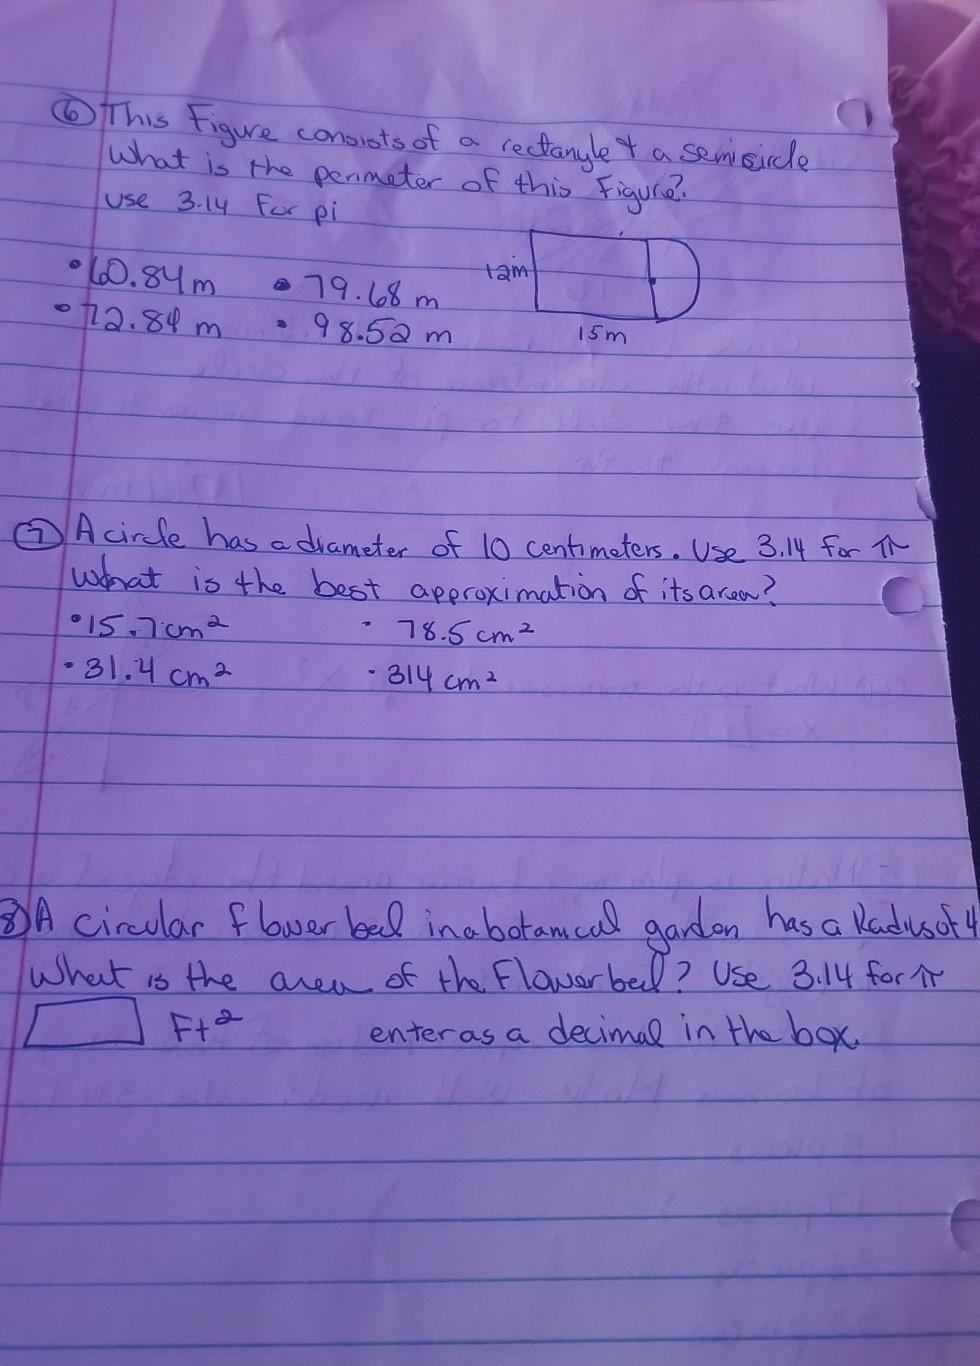 ⑥ This Figure consists of a rectangle & a semicircle
What is the perimeter of this Figure?
use 3.14 For pi
• 60.84 m • 79.68 m
• 72.84 m • 98.52 m
12m
15m
⑦ A circle has a diameter of 10 centimeters. Use 3.14 for π
What is the best approximation of its area?
• 15.7 cm² • 78.5 cm²
• 31.4 cm² • 314 cm²
⑧ A circular flower bed in a botanical garden has a Radius of 4
What is the area of the Flower bed? Use 3.14 for π
Ft² enter as a decimal in the box.